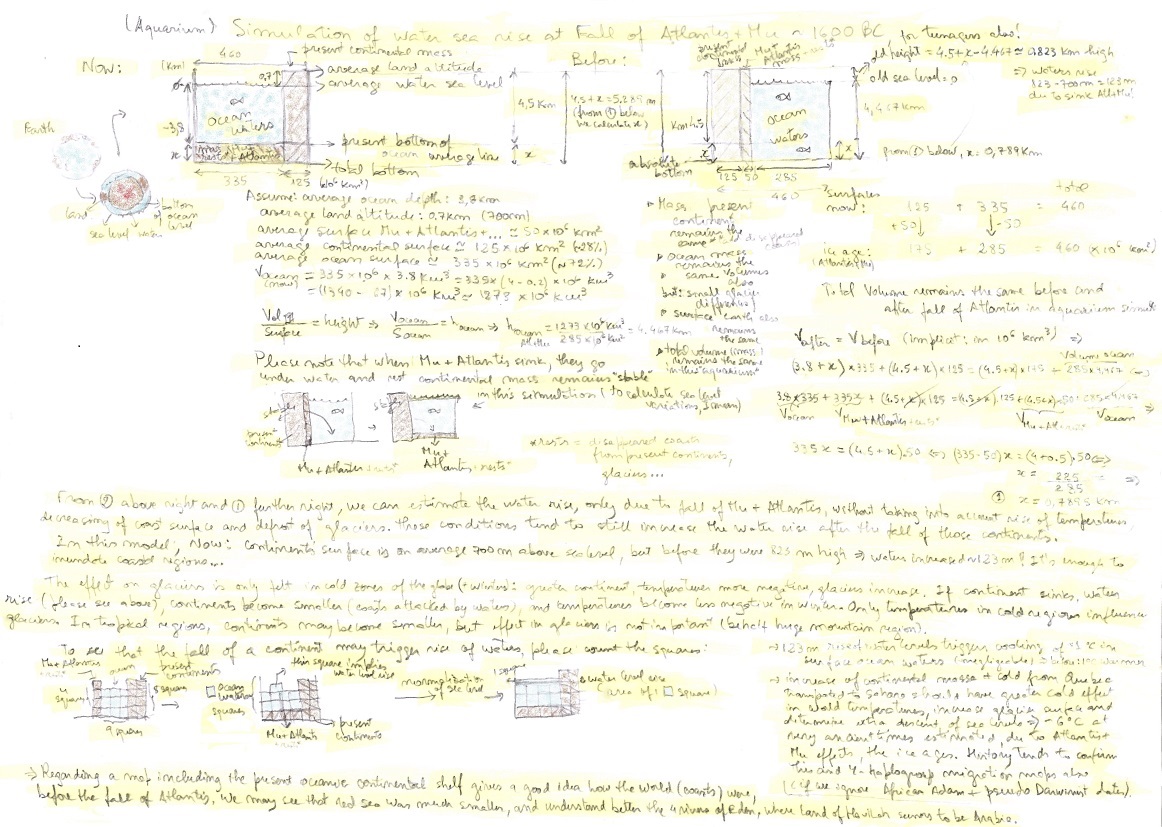 (Aquarium) Simulation of water sea rise at Fall of Atlantis + Mu ~ 1600 BC, for teenagers also!
Now:
[km]
460
present continental mass
average land altitude
average water sea level
0,7
0
-3,8
x
ocean
waters
present bottom of
ocean average line
total bottom
335
125
(10⁶ km²)
Earth
land
sea level
bottom
of ocean
level
Before:
4,5 Km
4.5+x=5.289 m
(from ① below
we calculate x)
x
absolute
bottom
ocean
waters
125 50 285
460
old height = 4.5+x-4.467 ≈ 0.823 km high
old sea level = 0
⇒ waters rise
823-700m = 123m
due to sink Atl+Mu!
4,467km
x
from ① below, x = 0,789km
Assume: average ocean depth: 3,8km
average land altitude: 0.7km (700m)
average surface Mu + Atlantis+... ≈ 50x10⁶ km²
average continental surface ≈ 125x10⁶ km² (~28%)
average ocean surface ≈ 335x10⁶ km² (~72%)
Vocean (now) = 335x10⁶ x 3.8 km³ = 335x(4-0.2)x10⁶ km³
= (1340-67)x10⁶ km³ ≈ 1273 x10⁶ km³
= height ⇒ Vocean / Socean = hocean ⇒ hocean = 1273x10⁶ km³ / 285x10⁶ km² = 4,467km
Please note that when Mu + Atlantis sink, they go
under water and rest continental mass remains "stable"
in this simulation (to calculate sea level
variations, I mean)
present
continent
Mu +
Atlantis + rests*
*rests = disappeared coasts
from present continents,
glaciers...
▸ Mass present
continent
remains the
same
▸ ocean mass
remains the
same, volumes
also
but: small glacier
▸ surface earth also
remains
the same
▸ total volume (mass)
remains the same
in this "aquarium"
surfaces
total
now: 125 + 335 = 460
+50 ↓ ↓ -50
ice age: 175 + 285 = 460 (x10⁶ km²)
(Atlantis+Mu)
Total Volume remains the same before and
after fall of Atlantis in aquarium simul.
Vafter = Vbefore (implicit: in 10⁶ km³) ⇒
Volume ocean
(3.8+x)x335 + (4.5+x)x125 = (4.5+x)x175 + 285x4.467 ⇔
3.8x335 + 335x + (4.5+x)x125 = (4.5+x).125 + (4.5+x).50 + 285x4.467 ⇒
Vocean VMu+Atlantis+rests VMu+Atlantis Vocean
335x = (4.5+x).50 ⇔ (335-50)x = (4+0.5).50 ⇔
x = 225 / 285 ⇒
① x = 0,7895 km
From ② above right and ① further right, we can estimate the water rise, only due to fall of Mu + Atlantis, without taking into account rise of temperatures,
decreasing of coast surface and defrost of glaciers. Those conditions tend to still increase the water rise after the fall of those continents.
In this model, Now: continents surface is on average 700m above sea level, but before they were 823 m high ⇒ waters increased ~123m! It is enough to
inundate coastal regions...
The effect on glaciers is only felt in cold zones of the globe (+winter): greater continent, temperatures more negative, glaciers increase. If continent sinks, waters
rise (please see above), continents become smaller (coasts attacked by waters), and temperatures become less negative in winter. Only temperatures in cold regions influence
glaciers. In tropical regions, continents may become smaller, but effect in glaciers is not important (behalf huge mountain region).
To see that the fall of a continent may trigger rise of waters, please count the squares:
Mu + Atlantis
ocean
present
continents
4
squares
9 squares
5 square
ocean
waters
squares
this square implies
water level rise
Mu + Atlantis
present
continents
normalization
of sea level
1 square
water level rise
(area of 1 square)
→ 123m rise of water levels triggers cooling of
surface ocean waters (negligeable)
→ increase of continental masses + cold from Quebec
transported to Sahara should have greater cold effect
in world temperatures, increase glacier surface and
determine extra descent of sea levels ⇒ -6°C at
very ancient times estimated, due to Atlantis+
Mu effects, the ice ages. History tends to confirm
this and Y-haplogroup migration maps also
(if we ignore African Adam + pseudo Darwinist dates).
⇒ Regarding a map including the present oceanic continental shelf gives a good idea how the world (coasts) were,
before the fall of Atlantis. We may see that red sea was much smaller, and understand better the 4 rivers of Eden, where land of Havilah seems to be Arabia.